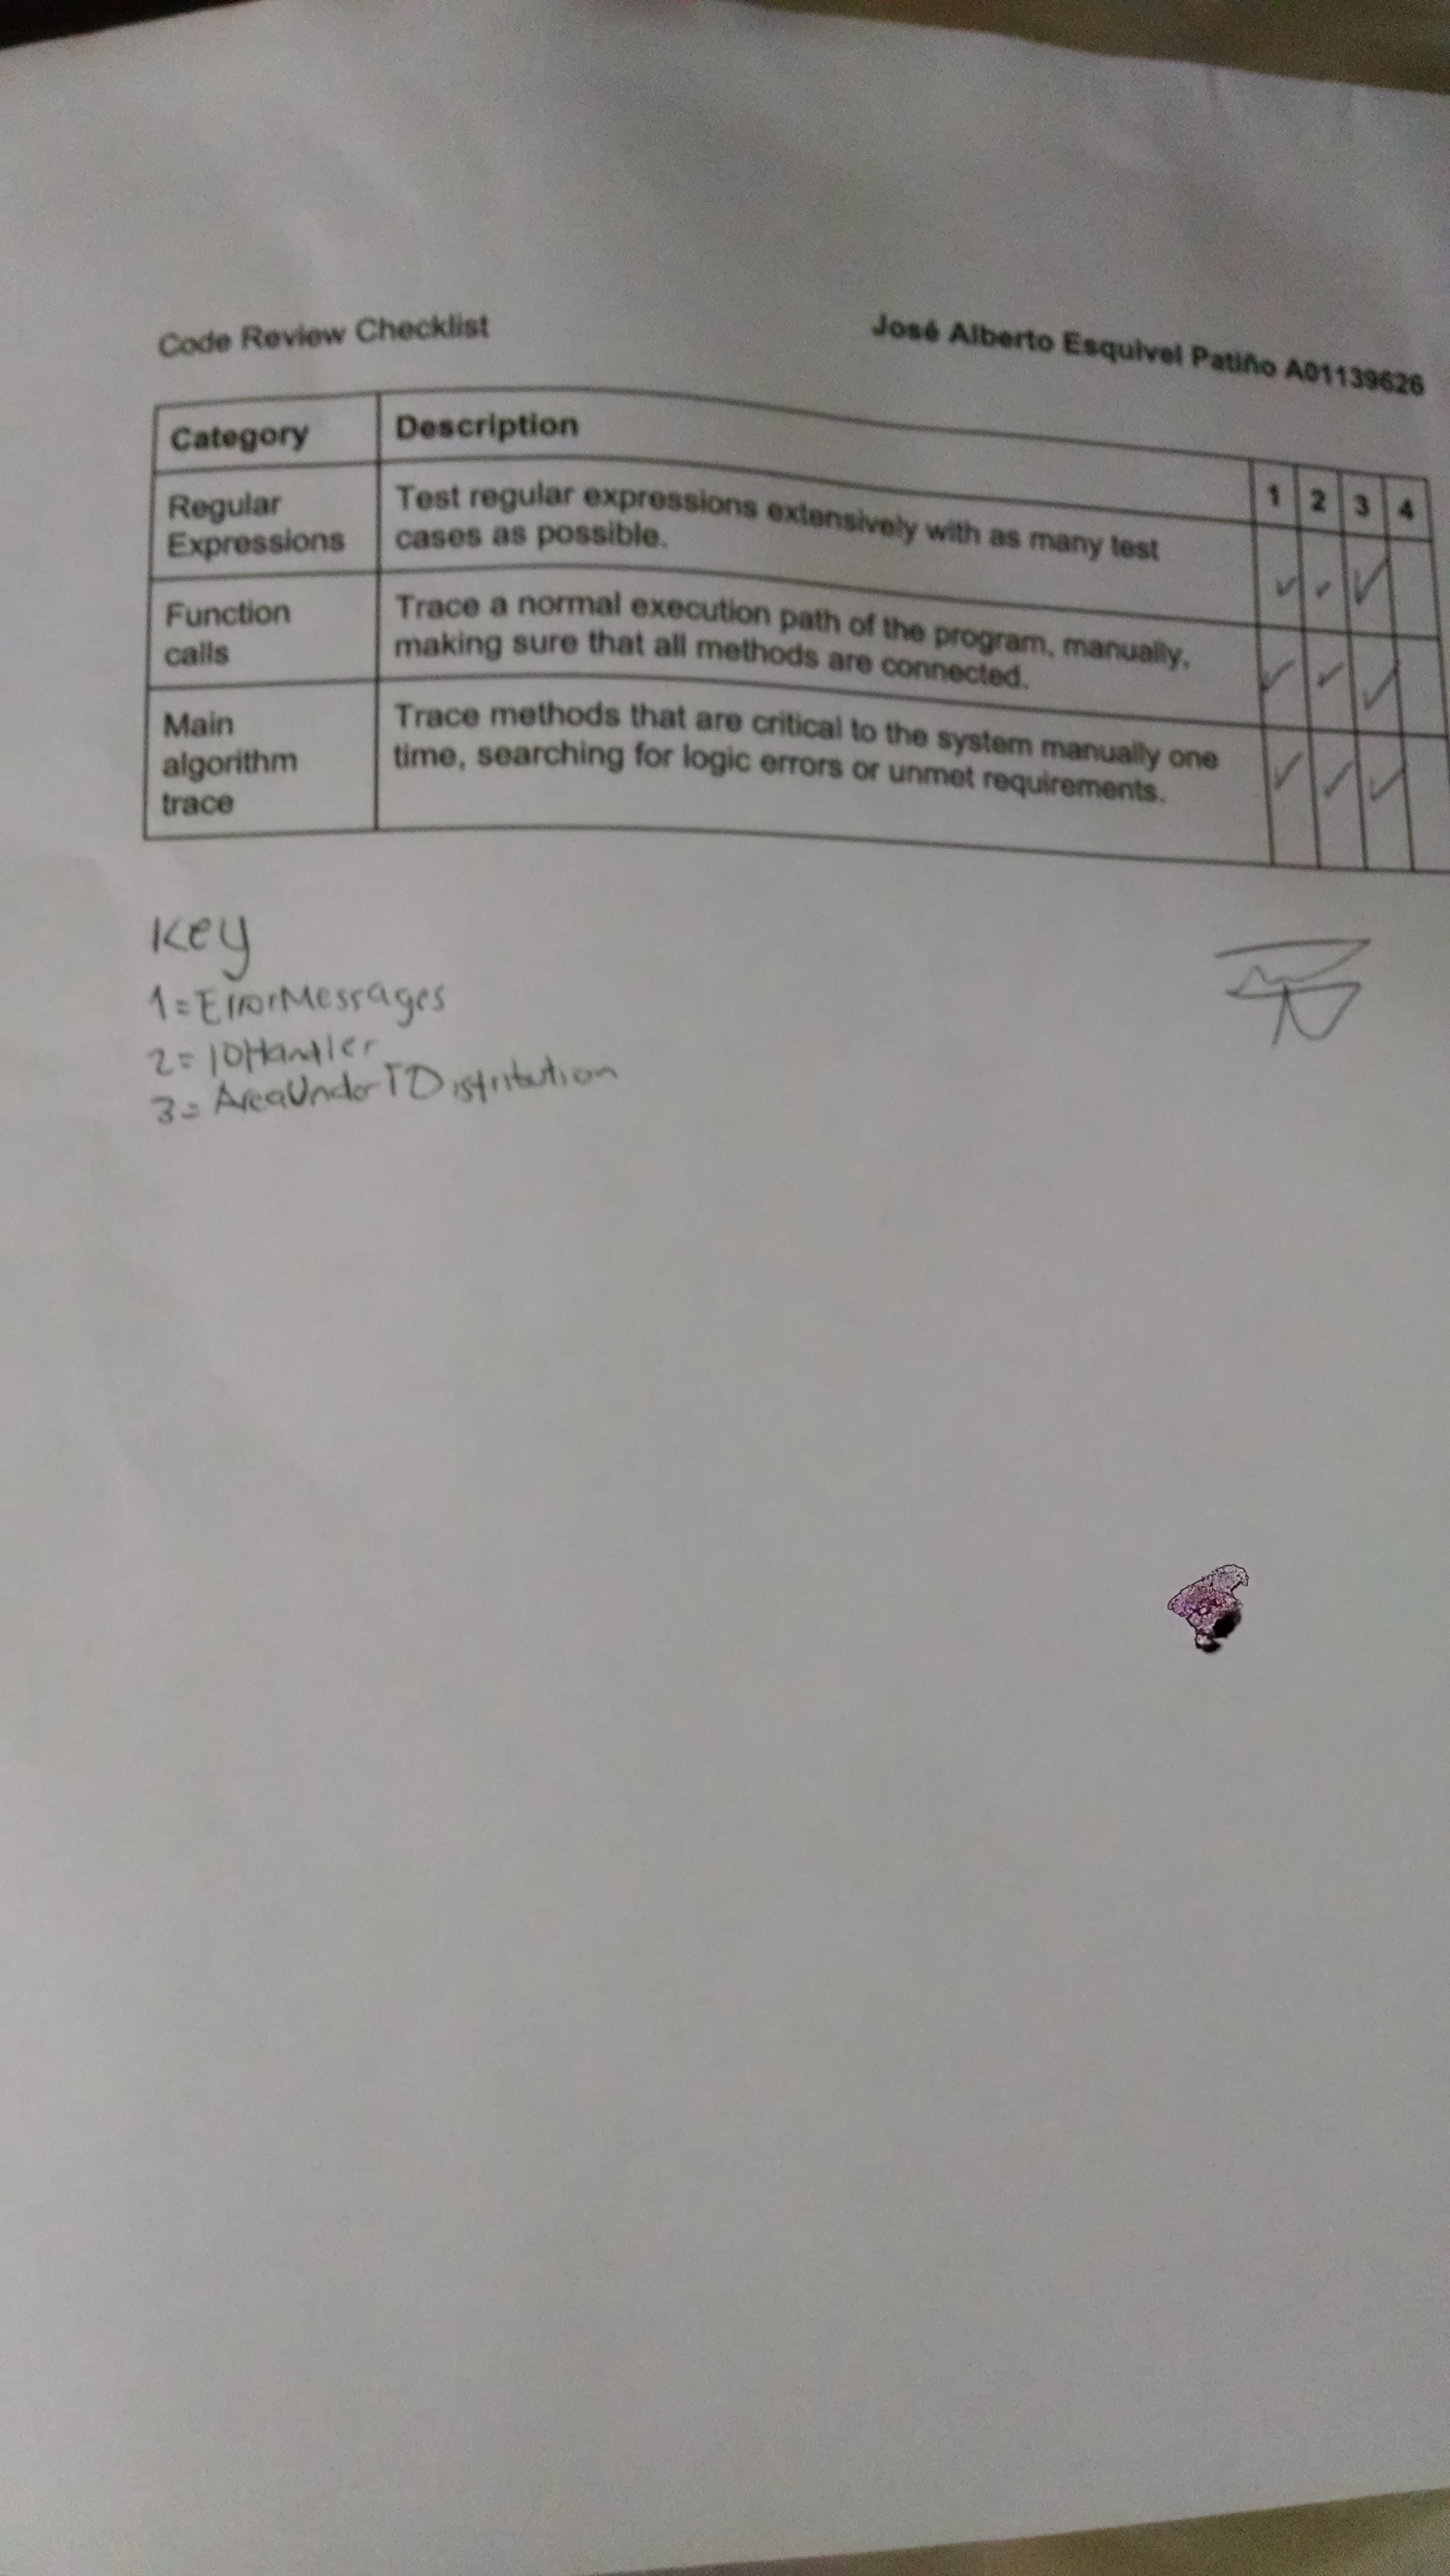 Code Review Checklist
José Alberto Esquivel Patiño A01139626
Category Description 1 2 3 4
Regular Expressions
Test regular expressions extensively with as many test
cases as possible.
✓ ✓ ✓
Function
calls
Trace a normal execution path of the program, manually,
making sure that all methods are connected.
✓ ✓ ✓
Main
algorithm
trace
Trace methods that are critical to the system manually one
time, searching for logic errors or unmet requirements.
✓ ✓ ✓
Key
1=ErrorMessages
2=IOHandler
3=AreaUnderTDistribution